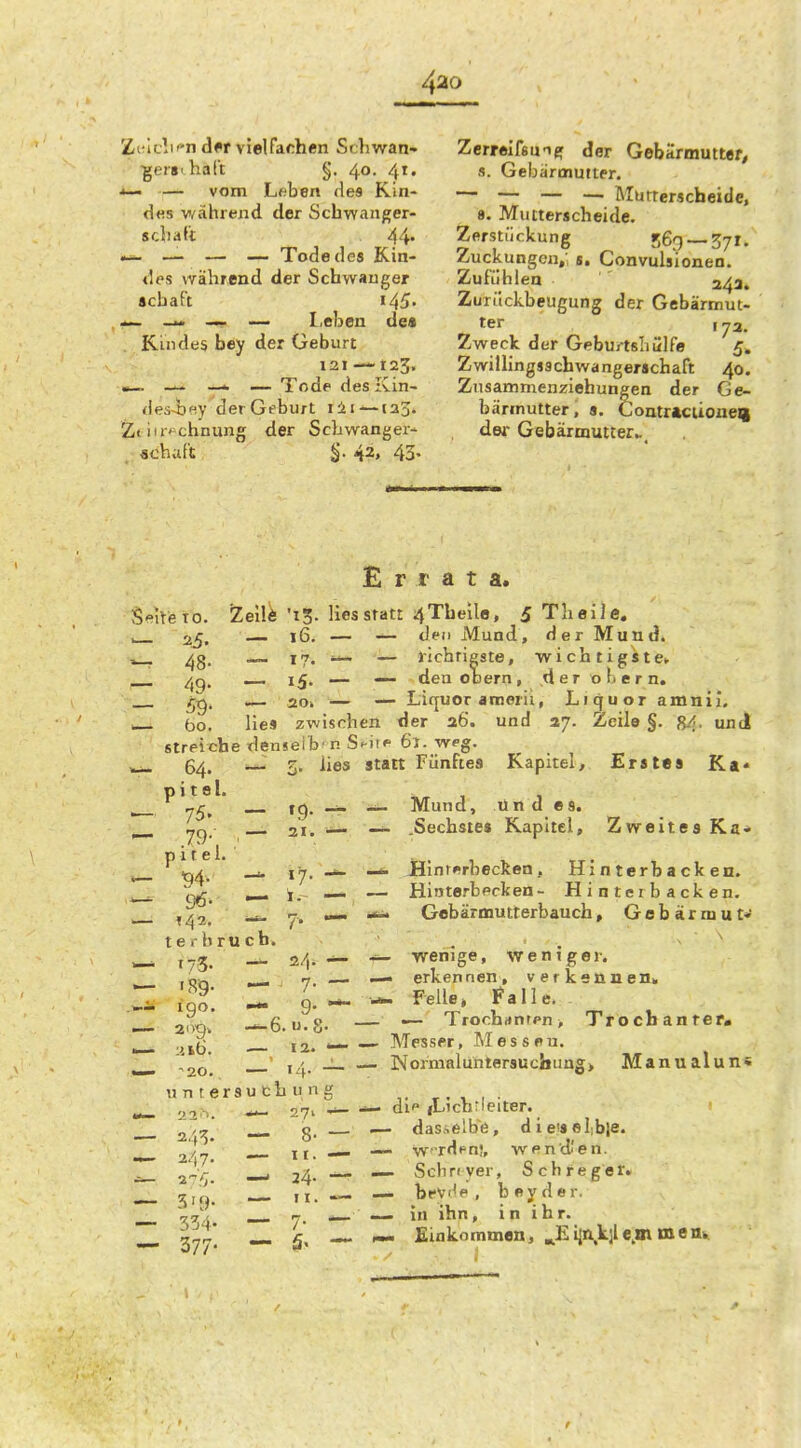 420
Zeichen der vielfachen Schwan-
gerschaft §. 40. 41.
— — vom Leben des Kin-
des während der Schwanger-
schaft 44.
— — — — Tode des Kin-
des während der Schwanger
schaft 145.
— — — — Leben des
Kindes bey der Geburt
121—123.
— — — — Tode des Kin-
des bey der Geburt 121—123.
Zeitrechnung der Schwanger-
schaft §. 42, 43.
Zerreifsung der Gebärmutter,
s. Gebärmutter.
— — — — Mutterscheide,
s. Mutterscheide.
Zerstückung 369—371.
Zuckungen, s. Convulsionen.
Zufühlen 242.
Zurückbeugung der Gebärmut-
ter 172.
Zweck der Geburtshülfe 5.
Zwillingsschwangerschaft 40.
Zusammenziehungen der Ge-
bärmutter, s. Contractionen
der Gebärmutter.
Errata.
Seite 10. Zeile 13. lies statt 4 Theile, 5 Theile.
— 25. — 16. — — den Mund, der Mund.
— 48. — 17. — — richtigste, wichtigste.
— 49. — 15. — — den obern, der obern.
— 59. — 20. — — Liquor amerii, Liquor amnii.
— 60. lies zwischen der 26. und 27. Zeile §. 84. und
streiche denselben Seite 61. weg.
— 64. — 3. lies statt Fünftes Kapitel, Erstes Ka-
pitel.
— 75. — 19. — — Mund, und es.
— 79. — 21. — — Sechstes Kapitel, Zweites Ka-
pitel.
— 94. — 17. — — Hinterbecken, Hinterbacken.
— 96. — 1. — — Hinterbecken- Hinterbacken.
— 142. — 7. — — Gebärmutterbauch, Gebärmut-
terbruch.
— 173. — 24. — — wenige, weniger.
— 189. — 7. — — erkennen, verkennen.
— 190. — 9. — — Felle, Falle.
— 209. —6. u. 8. — — Trochanten, Trochanter.
— 216. — 12. — — Messer, Messen.
— 220. — 14. — — Normaluntersuchung, Manualun-
untersuchung
— 220. — 27. — — die Lichtleiter.
— 243. — 8. — — dasselbe, dieselbe.
— 247. — 11. — — werden, wenden.
— 275. — 24. — — Schreyer, Schreger.
— 319. — 11. — — beyde, beyder.
— 334. — 7. — — in ihn, in ihr.
— 377. — 5. — — Einkommen, Einklemmen.